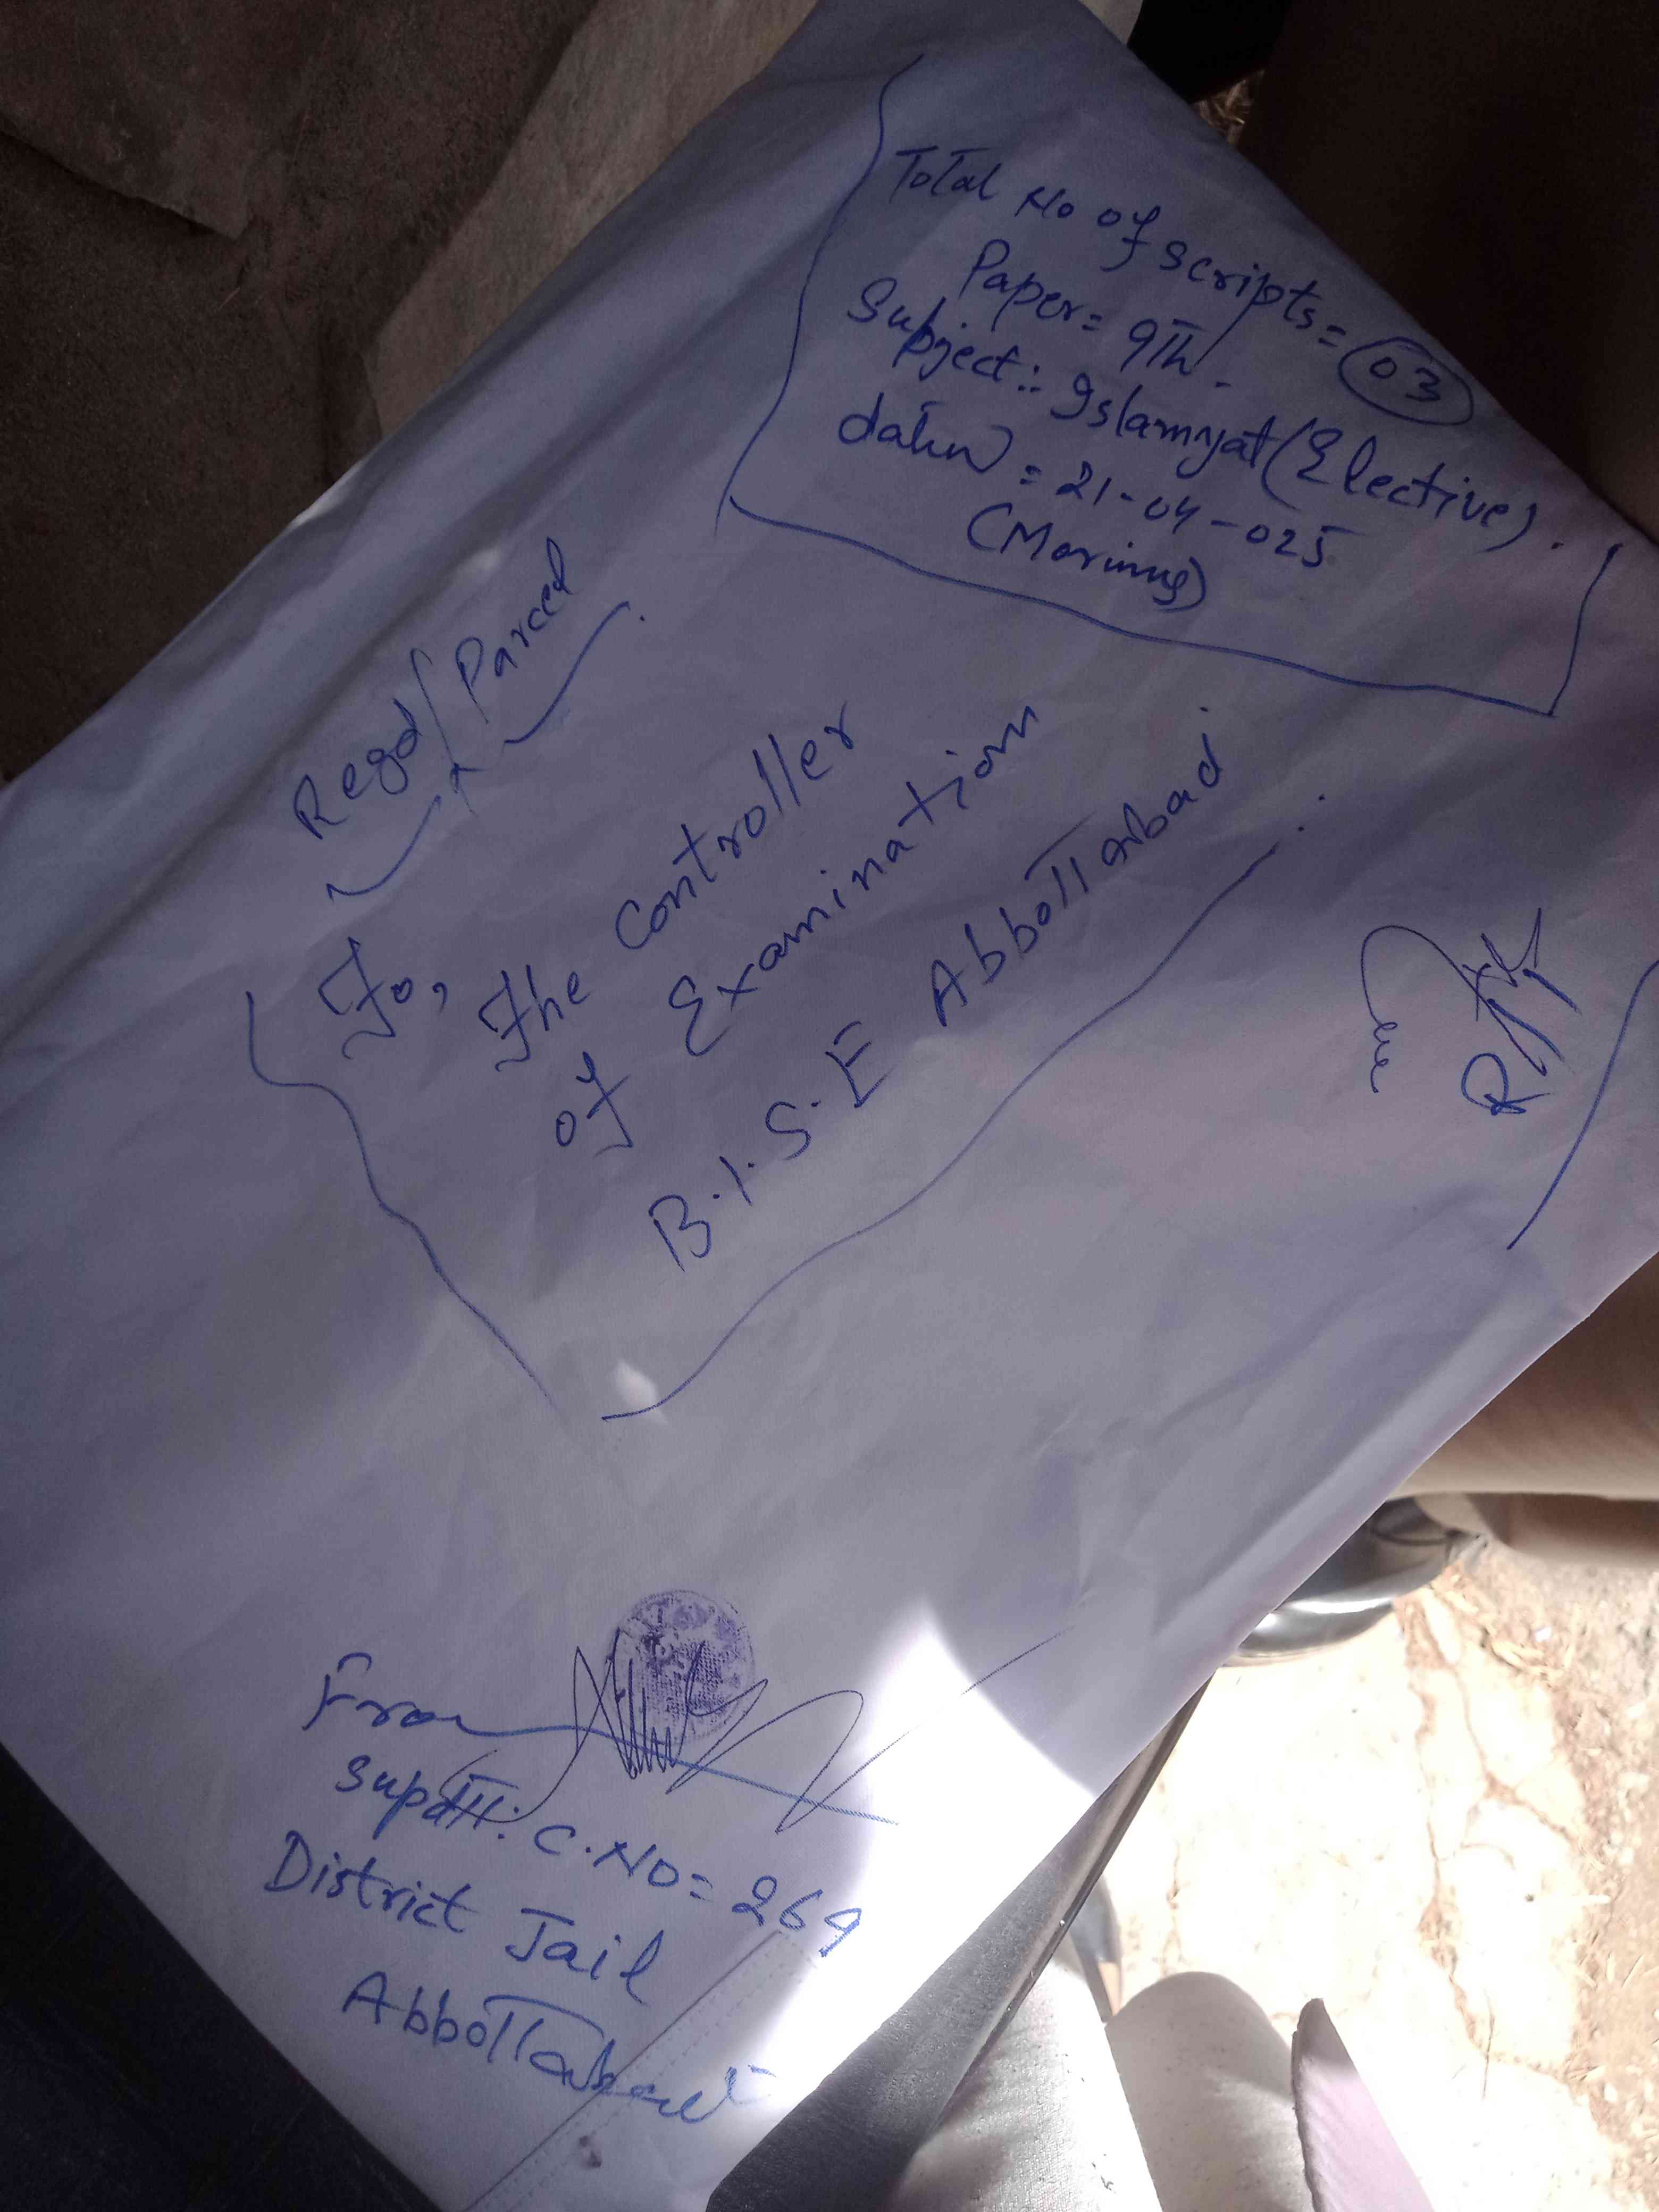 Total No of scripts = 03
Paper = 9th.
Subject :- Islamyat (Elective).
= 21-04-025
(Morning)
Regd/Parcel
To,
The Controller
of Examination
B.I.S.E Abbottabad
From
Supdtt: C.NO = 269
District Jail
Abbottabad